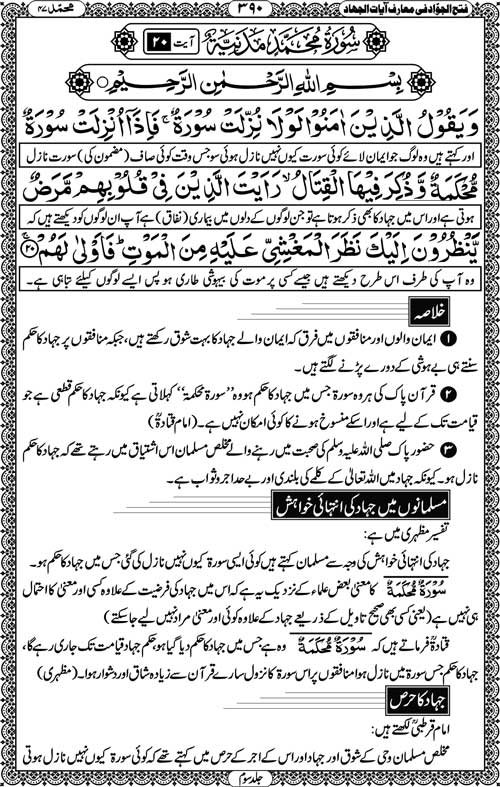 فتح الجوّاد فی معارف آیات الجہاد ۳۹۰ محمّد ۴۷
سُوْرَةُ مُحَمَّدٍ مَدَنِيَّةٌ آیت ۲۰
بِسْمِ اللهِ الرَّحْمٰنِ الرَّحِيْمِ
وَيَقُوْلُ الَّذِيْنَ اٰمَنُوْا لَوْلَا نُزِّلَتْ سُوْرَةٌ ۚ فَاِذَآ اُنْزِلَتْ سُوْرَةٌ
اور کہتے ہیں وہ لوگ جو ایمان لائے کوئی سورت کیوں نہیں نازل ہوئی سو جس وقت کوئی صاف (مضمون کی) سورت نازل
مُّحْكَمَةٌ وَّذُكِرَ فِيْهَا الْقِتَالُ ۙ رَاَيْتَ الَّذِيْنَ فِيْ قُلُوْبِهِمْ مَّرَضٌ
ہوتی ہے اور اس میں جہاد کا بھی ذکر ہوتا ہے تو جن لوگوں کے دلوں میں بیماری (نفاق) ہے آپ ان لوگوں کو دیکھتے ہیں کہ
يَّنْظُرُوْنَ اِلَيْكَ نَظَرَ الْمَغْشِيِّ عَلَيْهِ مِنَ الْمَوْتِ ؕ فَاَوْلٰى لَهُمْ ۚ ۲۰
وہ آپ کی طرف اس طرح دیکھتے ہیں جیسے کسی پر موت کی بیہوشی طاری ہو پس ایسے لوگوں کیلئے تباہی ہے۔
خلاصہ
۱ ایمان والوں اور منافقوں میں فرق کہ ایمان والے جہاد کا بہت شوق رکھتے ہیں، جبکہ منافقوں پر جہاد کا حکم
سنتے ہی بے ہوشی کے دورے پڑنے لگتے ہیں۔
۲ قرآن پاک کی ہر وہ سورۃ جس میں جہاد کا حکم ہو وہ ”سورۃ محکمۃ“ کہلاتی ہے کیونکہ جہاد کا حکم قطعی ہے جو
قیامت تک کے لیے ہے اور اسکے منسوخ ہونے کا کوئی امکان نہیں ہے۔ (امام قتادہؒ)
۳ حضور پاک صلی اللہ علیہ وسلم کی صحبت میں رہنے والے مخلص مسلمان اس اشتیاق میں رہتے تھے کہ جہاد کا حکم
نازل ہو۔ کیونکہ جہاد میں اللہ تعالیٰ کے کلمے کی بلندی اور بے حد اجر و ثواب ہے۔
مسلمانوں میں جہاد کی انتہائی خواہش
تفسیر مظہری میں ہے:
جہاد کی انتہائی خواہش کی وجہ سے مسلمان کہتے ہیں کوئی ایسی سورۃ کیوں نہیں نازل کی گئی جس میں جہاد کا حکم ہو۔
سُوْرَةٌ مُّحْكَمَةٌ کا معنیٰ بعض علماء کے نزدیک یہ ہے کہ اس میں جہاد کی فرضیت کے علاوہ کسی اور معنیٰ کا احتمال
ہی نہیں ہے (یعنی کسی بھی صحیح تاویل کے ذریعے جہاد کے علاوہ کوئی اور معنی مراد نہیں لیے جا سکتے)
قتادہؒ فرماتے ہیں کہ سُوْرَةٌ مُّحْكَمَةٌ وہ ہے جس میں جہاد کا حکم دیا گیا ہو، حکم جہاد قیامت تک جاری رہے گا،
جہاد کا حکم جس سورۃ میں نازل ہوا منافقوں پر اس سورۃ کا نزول سارے قرآن سے زیادہ شاق اور دشوار ہوا۔ (مظہری)
جہاد کا حرص
امام قرطبیؒ لکھتے ہیں:
مخلص مسلمان وحی کے شوق اور جہاد اور اس کے اجر کے حرص میں کہتے تھے کہ کوئی سورۃ کیوں نہیں نازل ہوتی
جلد سوم